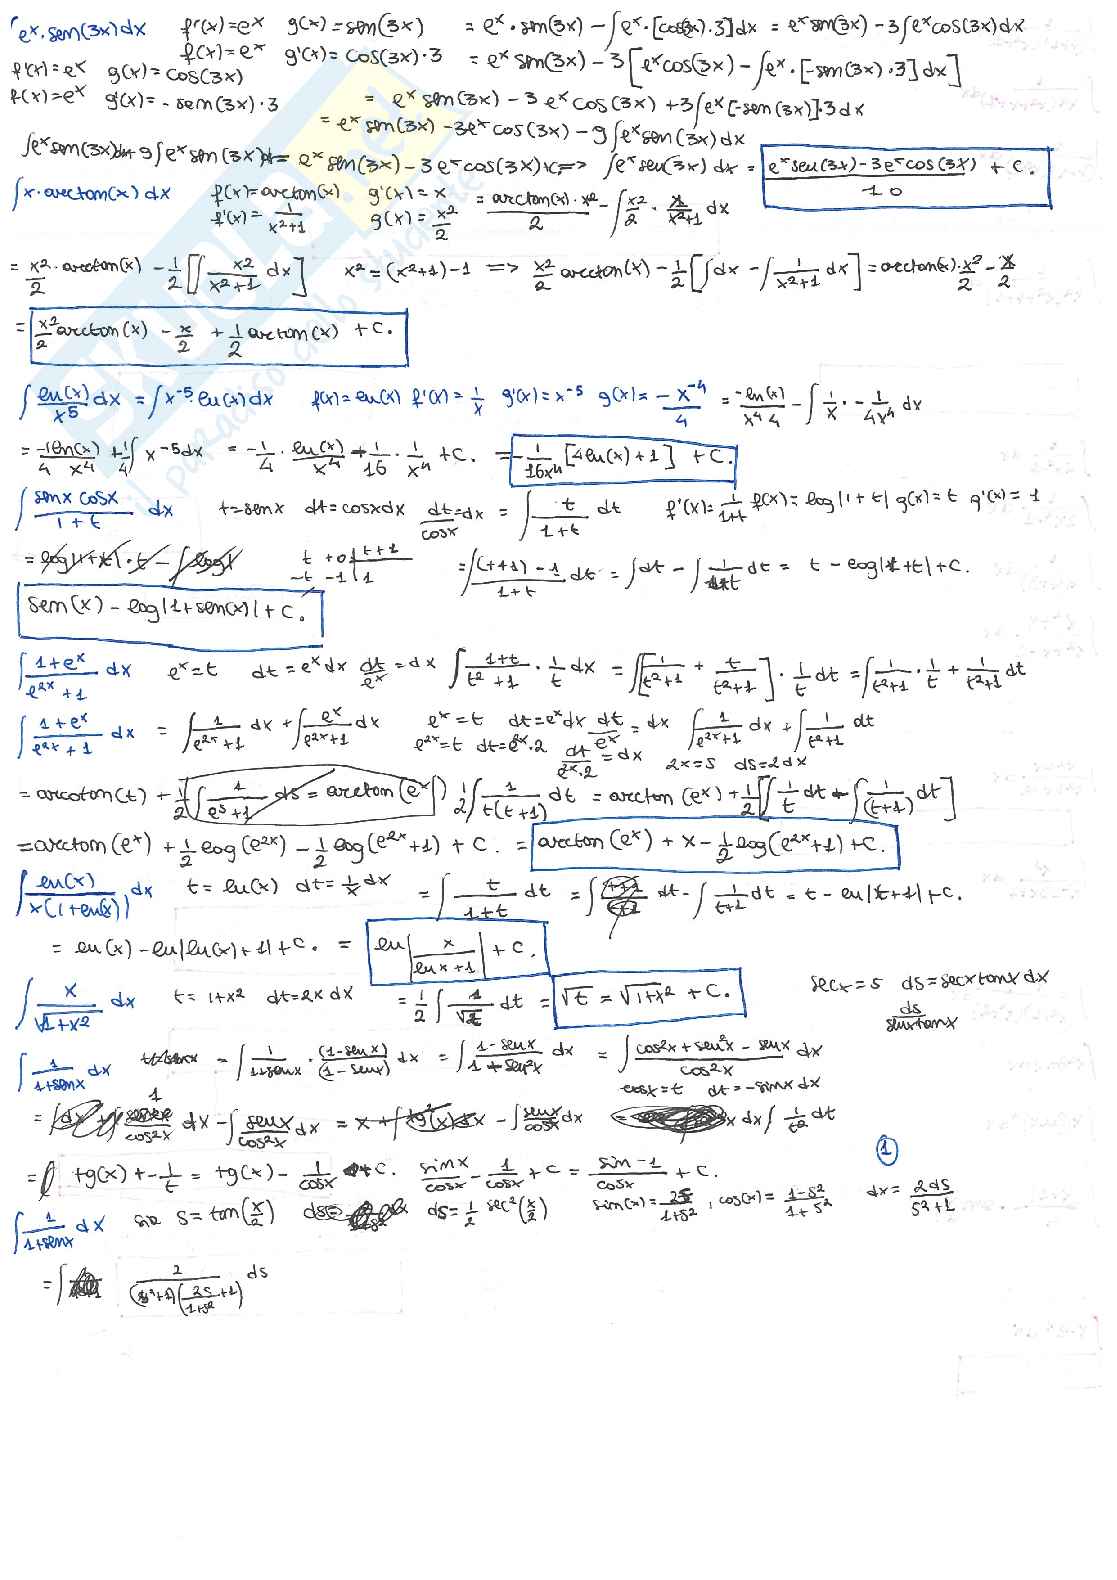 ∫eˣ·sen(3x)dx f'(x)=eˣ g(x)=sen(3x) = eˣ·sin(3x) − ∫eˣ·[cos(3x)·3]dx = eˣ sin(3x) − 3∫eˣcos(3x)dx
f(x)=eˣ g'(x)=cos(3x)·3 = eˣ sin(3x) − 3[eˣcos(3x) − ∫eˣ·[−sin(3x)·3]dx]
f'(x)=eˣ g(x)=cos(3x)
f(x)=eˣ g'(x)=−sen(3x)·3 = eˣ sen(3x) − 3eˣcos(3x) + 3∫eˣ[−sen(3x)]·3dx
= eˣ sin(3x) − 3eˣcos(3x) − 9∫eˣsen(3x)dx
∫eˣsen(3x)dx+9∫eˣsen(3x)dx = eˣsen(3x) − 3eˣcos(3x)+c <=> ∫eˣsen(3x) dx = (eˣsen(3x)−3eˣcos(3x))/10 + c.
∫x·arctan(x) dx f(x)=arctan(x) g'(x)=x = (arctan(x)·x²)/2 − ∫x²/2 · 1/(x²+1) dx
f'(x)=1/(x²+1) g(x)=x²/2
= x²/2·arctan(x) − 1/2[∫x²/(x²+1) dx] x²=(x²+1)−1 => x²/2 arctan(x) − 1/2[∫dx − ∫1/(x²+1) dx] = arctan(x)·x²/2 − x/2
= x²/2 arctan(x) − x/2 + 1/2 arctan(x) + c.
∫ln(x)/x⁵ dx = ∫x⁻⁵·ln(x)dx f(x)=ln(x) f'(x)=1/x g'(x)=x⁻⁵ g(x)=−x⁻⁴/4 = −ln(x)/(x⁴4) − ∫1/x · −1/(4x⁴) dx
= −1/4 ln(x)/x⁴ + 1/4∫x⁻⁵dx = −1/4·ln(x)/x⁴ − 1/16·1/x⁴ + c. = −1/(16x⁴)[4ln(x)+1] + c.
∫(sinx cosx)/(1+t) dx t=senx dt=cosxdx dt/cosx=dx = ∫t/(1+t) dt f'(x)=1/(1+t) f(x)=log|1+t| g(x)=t g'(x)=1
t +0 | t+1
−t −1 | 1 = ∫((t+1)−1)/(1+t) dt = ∫dt − ∫1/(1+t) dt = t − log|1+t|+c.
sen(x) − log|1+sen(x)|+c.
∫(1+eˣ)/(e²ˣ+1) dx eˣ=t dt=eˣdx dt/eˣ=dx ∫(1+t)/(t²+1)·1/t dx = ∫[1/(t²+1) + t/(t²+1)]·1/t dt = ∫1/(t²+1)·1/t + 1/(t²+1) dt
∫(1+eˣ)/(e²ˣ+1) dx = ∫1/(e²ˣ+1) dx + ∫eˣ/(e²ˣ+1) dx eˣ=t dt=eˣdx dt/eˣ=dx ∫1/(e²ˣ+1) dx + ∫1/(t²+1) dt
e²ˣ=t dt=e²ˣ·2 dt/(e²ˣ·2)=dx 2x=s ds=2dx
= arctan(t) + 1/2(∫1/(eˢ+1) ds = arctan(eˣ)) 1/2∫1/(t(t+1)) dt = arctan(eˣ) + 1/2[∫1/t dt − ∫1/(t+1) dt]
= arctan(eˣ) + 1/2 log(e²ˣ) − 1/2 log(e²ˣ+1) + c. = arctan(eˣ) + x − 1/2 log(e²ˣ+1)+c.
∫ln(x)/(x(1+ln(x))) dx t=ln(x) dt=1/x dx = ∫t/(1+t) dt = ∫(t+1)/(t+1) dt − ∫1/(t+1) dt = t − ln|t+1|+c.
= ln(x) − ln|ln(x)+1|+c. = ln|x/(lnx+1)| + c.
∫x/√(1+x²) dx t=1+x² dt=2xdx = 1/2∫1/√t dt = √t = √(1+x²) + c. secx=s ds=secxtanxdx
ds/
∫1/(1+senx) dx = ∫1/(1+senx)·(1−senx)/(1−senx) dx = ∫(1−senx)/(1−sen²x) dx = ∫(cos²x+sen²x−senx)/cos²x dx
cosx=t dt=−sinxdx
= ∫1/cos²x dx − ∫senx/cos²x dx = x + ∫tg²(x)dx − ∫senx/cos²x dx dx ∫1/t² dt
= tg(x) + −1/t = tg(x) − 1/cosx + c. sinx/cosx − 1/cosx + c = (sin−1)/cosx + c. ①
∫1/(1+senx) dx sia s=tan(x/2) ds=1/2 sec²(x/2) sin(x)=2s/(1+s²), cos(x)=(1−s²)/(1+s²) dx=2ds/(s²+1)
=∫ 2/((s²+1)(2s/(1+s²)+1)) ds